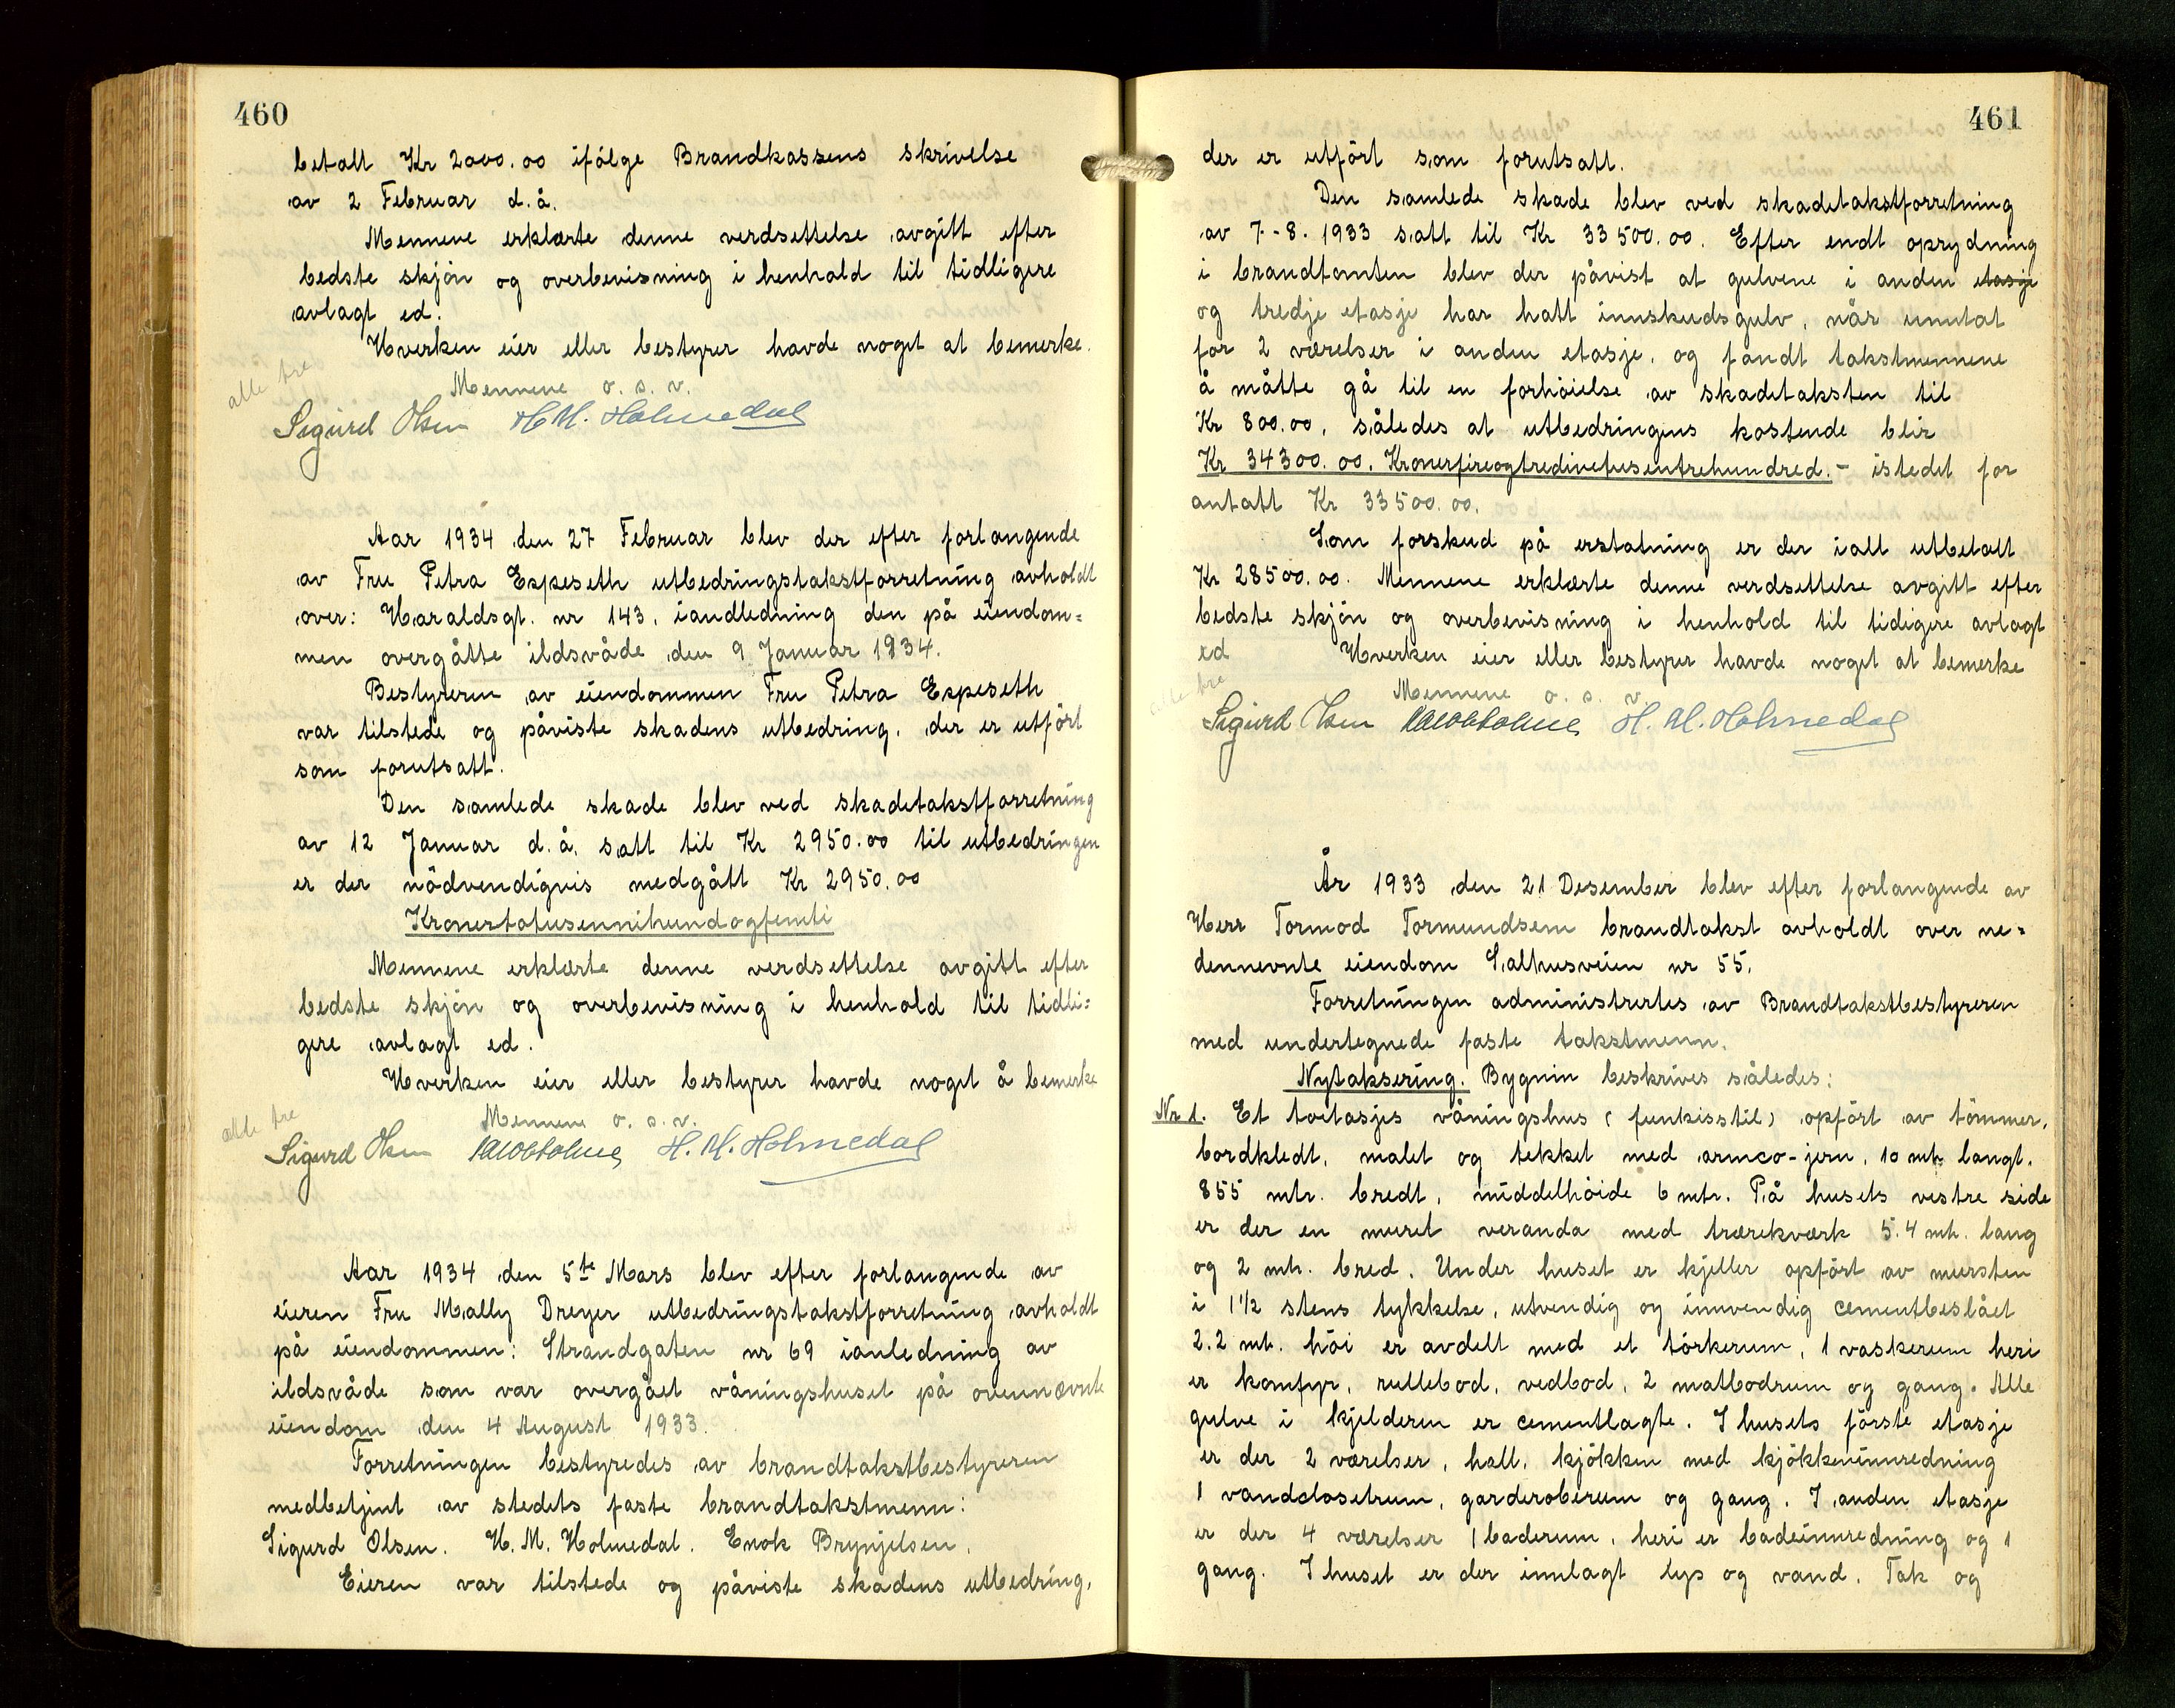 460
betalt Kr 2000.00 ifölge Brandkassens skrivelse
av 2 Februar d.å.
Mennene erklærte denne verdsettelse avgitt efter
bedste skjön og overbevisning i henhold til tidligere
avlagt ed.
Hverken eier eller bestyrer havde noget at bemerke.
alle tre
Mennene o. s. v.
Sigurd Olsen H. M. Holmedal
Aar 1934 den 27 Februar blev der efter forlangende
av Fru Petra Espeseth utbedringstakstforretning avholdt
over: Haraldsgt. nr 143, iandledning den på eiendom=
men overgåtte ildsvåde den 9 Januar 1934.
Bestyreren av eiendommen Fru Petra Espeseth
var tilstede og påviste skadens utbedring, der er utfört
som forutsatt.
Den samlede skade blev ved skadetakstforretning
av 12 Januar d.å. satt til Kr 2950.00 til utbedringen
er der nödvendigvis medgått Kr 2950.00
Kronertotusennihundogfemti
Mennene erklærte denne verdsettelse avgitt efter
bedste skjön og overbevisning i henhold til tidli=
gere avlagt ed.
Hverken eier eller bestyrer havde noget å bemerke
alle tre
Mennene o. s. v.
Sigurd Olsen H. M. Holmedal
Aar 1934 den 5te Mars blev efter forlangende av
eieren Fru Mally Dreyer utbedringstakstforretning avholdt
på eiendommen: Strandgaten nr 69 ianledning av
ildsvåde som var overgået våningshuset på ovennævnte
eiendom den 4 August 1933.
Forretningen bestyredes av brandtakstbestyreren
medbetjent av stedets faste brandtakstmenn:
Sigurd Olsen. H. M. Holmedal. Enok Brynjelsen.
Eieren var tilstede og påviste skadens utbedring,
461
der er utfört som forutsatt.
Den samlede skade blev ved skadetakstforretning
av 7-8. 1933 satt til Kr 33500.00. Efter endt oprydning
i brandtomten blev der påvist at gulvene i anden etasje
og tredje etasje har hatt innskudsgulv, når unntat
for 2 værelser i anden etasje, og fandt takstmennene
å måtte gå til en forhöielse av skadetaksten til
Kr 800.00, således at utbedringens kostende blir
Kr 34300.00. Kronerfireogtredivetusentrehundred. - istedet for
antatt Kr 33500.00.
Som forskud på erstatning er der ialt utbetalt
Kr 28500.00. Mennene erklærte denne verdsettelse avgitt efter
bedste skjön og overbevisning i henhold til tidigere avlagt
ed Hverken eier eller bestyrer havde noget at bemerke
alle tre
Mennene o. s. v.
Sigurd Olsen H. M. Holmedal
År 1933 den 21 Desember blev efter forlangende av
Herr Tormod Tormundsem brandtakst avholdt over ne=
dennevnte eiendom Salhusveien nr 55.
Forretningen administrertes av Brandtakstbestyreren
med undertegnede faste takstmenn.
Nytaksering. Bygnin beskrives således:
Nr 1. Et toetasjes våningshus (funkisstil) opfört av tömmer,
bordkledt, malet og tekket med armco-jern, 10 mtr langt,
855 mtr. bredt, middelhöide 6 mtr. På husets vestre side
er der en muret veranda med trærekværk 5.4 mtr. lang
og 2 mtr. bred. Under huset er kjeller opfört av mursten
i 1 1/2 stens tykkelse, utvendig og innvendig cementbeslået
2.2 mtr. höi er avdelt med et törkerum, 1 vaskerum heri
er komfyr, rullebod, vedbod, 2 matbodrum og gang. Alle
gulve i kjelderen er cementlagte. I husets förste etasje
er der 2 værelser, hall, kjökken med kjökkeninnredning
1 vandclosetrum, garderoberum og gang. I anden etasje
er der 4 værelser 1 baderum, heri er badeinnredning og 1
gang. I huset er der innlagt lys og vand. Tak og